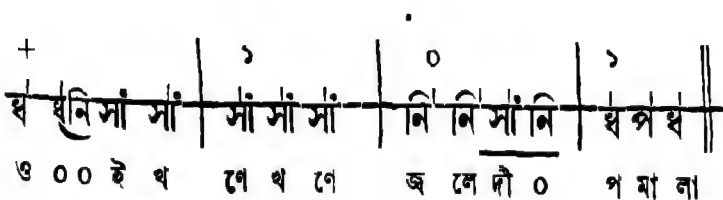 + ১ ০ ১
ধ ধনি সাঁ সাঁ | সাঁ সাঁ সাঁ | নি নি সাঁ নি | ধ প ধ ‖
ও ০০ ই খ ণে খ ণে জ লে দী ০ প মা লা